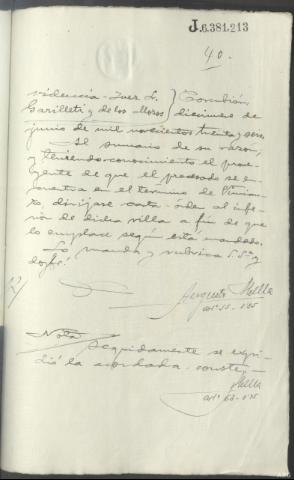 J.6.381.213
40.
videncia-Juez S. } Corcubión,
Garilleti y de los Mozos } diecinueve de
junio de mil novecientos treinta y seis.
Al sumario de su razón,
y teniendo conocimiento el prove-
yente de que el procesado se en-
cuentra en el término de
dirijase carta-orden al infe-
rior de dicha villa a fin de que
lo emplace según está mandado.
Lo manda y rubrica S.Sª. y
doy fé.
Augusto Mella
Nota
Seguidamente se expi-
dió la acordada. conste,-
Mella